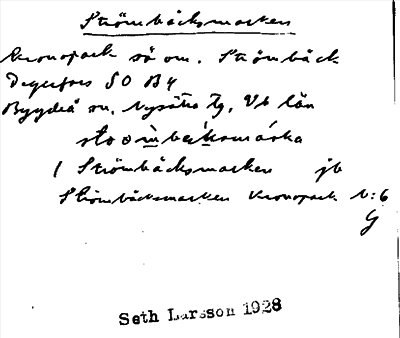 Strömbäcksmarken
Kronopark sö om. Strömbäck
Degerfors SO B4
Bygdeå sn. Nysätra tg, Vb län
Strömbäcksmarken jb
Strömbäcksmarken Kronopark 1:6
G
Seth Larsson 1928